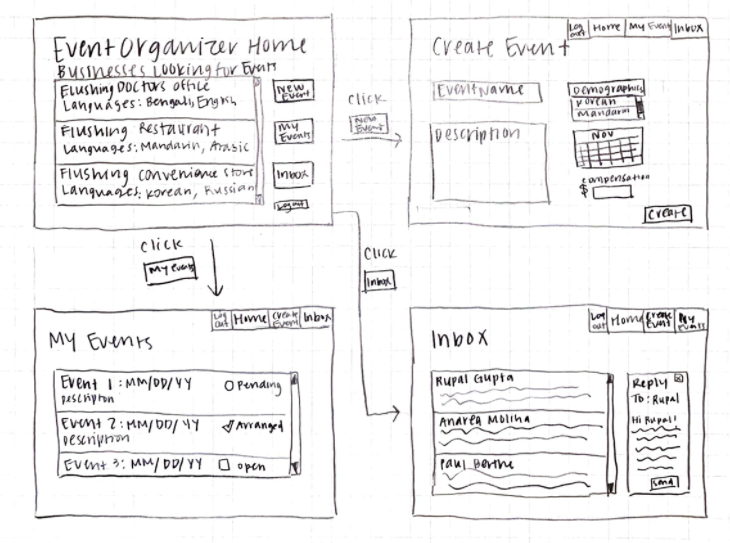 Event Organizer Home
Businesses Looking for Events
Flushing Doctors office
Languages: Bengali, English
Flushing Restaurant
Languages: Mandarin, Arabic
Flushing convenience store
Languages: Korean, Russian
New Event
My Events
Inbox
Logout
click
New Event
Log out Home My Event Inbox
Create Event
Event Name
Description
Demographics
Korean
Mandarin
Nov
compensation
$
Create
click
My Events
Click
Inbox
Log out Home Create Event Inbox
My Events
Event 1: MM/DD/YY Pending
description
Event 2: MM/DD/YY Arranged
description
Event 3: MM/DD/YY open
Log out Home Create Event My Events
Inbox
Rupal Gupta
Andrea Molina
Paul Berthe
Reply x
To: Rupal
Hi Rupal!
send